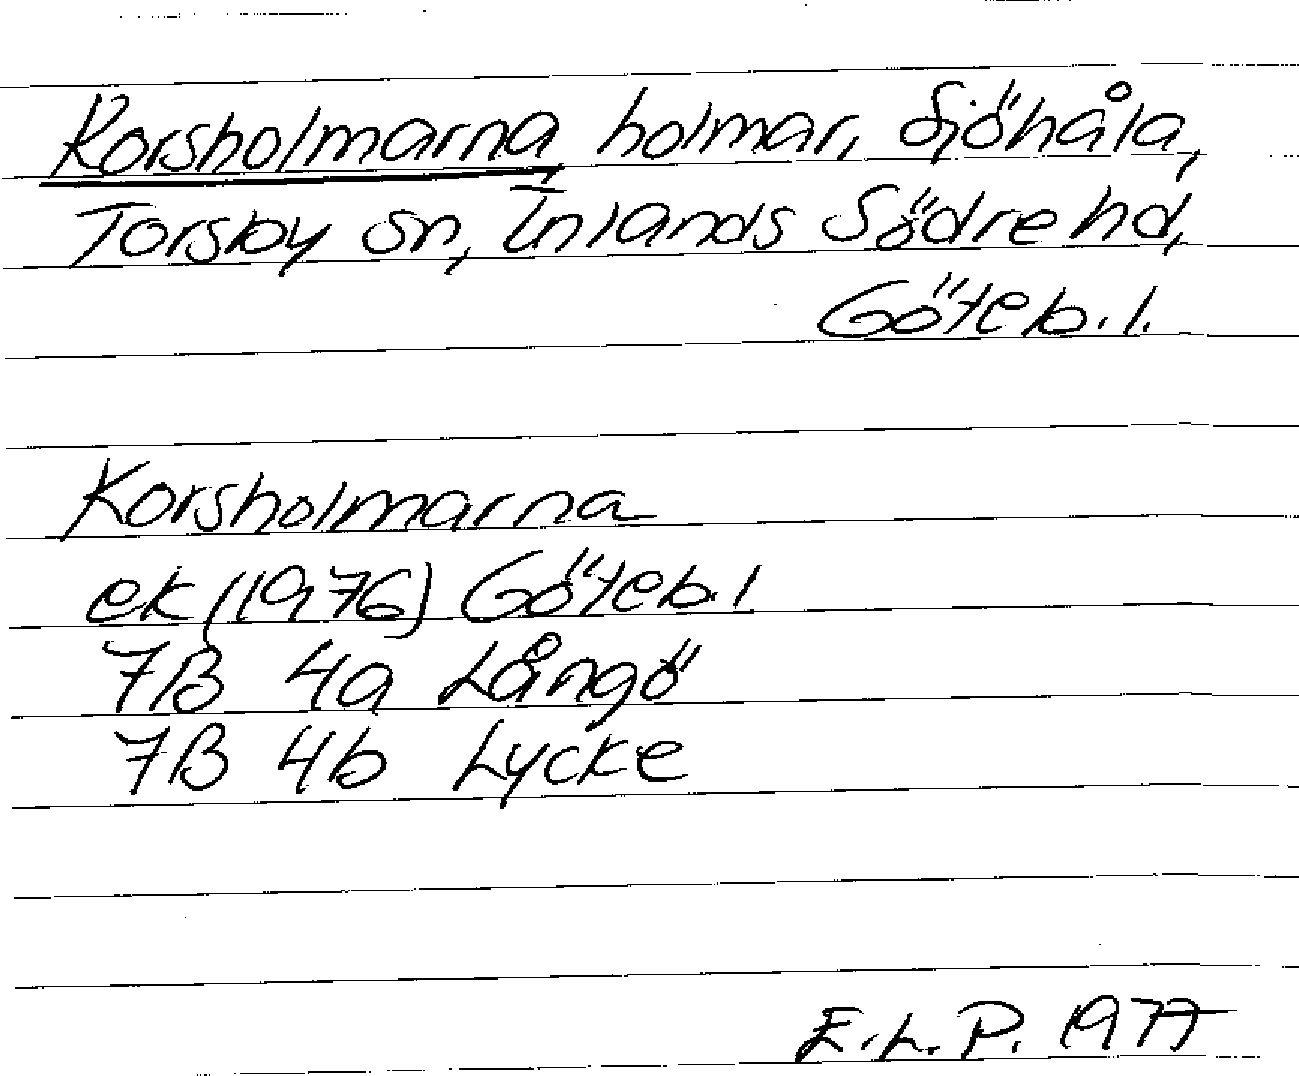 Korsholmarna, holmar, Sjöhåla,
Torsby sn, Inlands Södre hd,
Göteb. l.
Korsholmarna
ek (1976) Göteb. l
7B 4a Långö
7B 4b Lycke
E.L.P. 1977